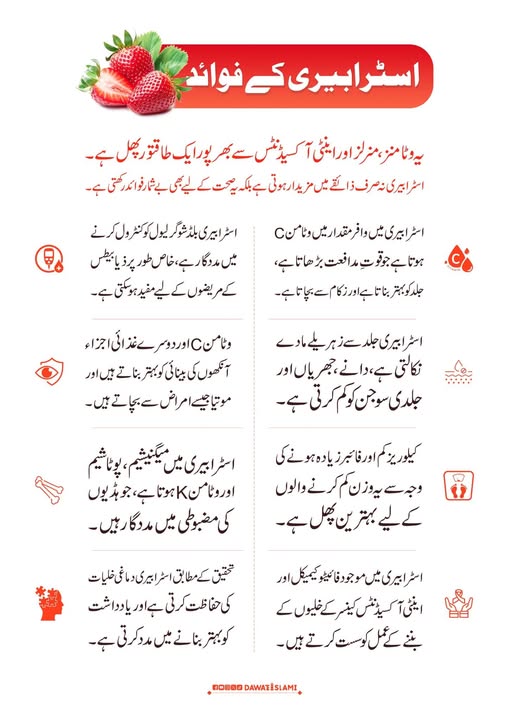 اسٹرابیری کے فوائد
یہ وٹامنز، منرلز اور اینٹی آکسیڈنٹس سے بھرپور ایک طاقتور پھل ہے۔
اسٹرابیری نہ صرف ذائقے میں مزیدار ہوتی ہے بلکہ یہ صحت کے لیے بھی بے شمار فوائد رکھتی ہے۔
اسٹرابیری میں وافر مقدار میں وٹامن C
ہوتا ہے جو قوتِ مدافعت بڑھاتا ہے،
جلد کو بہتر بناتا ہے اور زکام سے بچاتا ہے۔
اسٹرابیری بلڈ شوگر لیول کو کنٹرول کرنے
میں مددگار ہے، خاص طور پر ذیابیطس
کے مریضوں کے لیے مفید ہو سکتی ہے۔
اسٹرابیری جلد سے زہریلے مادے
نکالتی ہے، دانے، جھریاں اور
جلدی سوجن کو کم کرتی ہے۔
وٹامن C اور دوسرے غذائی اجزاء
آنکھوں کی بینائی کو بہتر بناتے ہیں اور
موتیا جیسے امراض سے بچاتے ہیں۔
کیلوریز کم اور فائبر زیادہ ہونے کی
وجہ سے یہ وزن کم کرنے والوں
کے لیے بہترین پھل ہے۔
اسٹرابیری میں میگنیشیم، پوٹاشیم
اور وٹامن K ہوتا ہے، جو ہڈیوں
کی مضبوطی میں مددگار ہیں۔
اسٹرابیری میں موجود فائیٹو کیمیکل اور
اینٹی آکسیڈنٹس کینسر کے خلیوں کے
بننے کے عمل کو سست کرتے ہیں۔
تحقیق کے مطابق اسٹرابیری دماغی خلیات
کی حفاظت کرتی ہے اور یادداشت
کو بہتر بنانے میں مدد کرتی ہے۔
DAWATEISLAMI
C